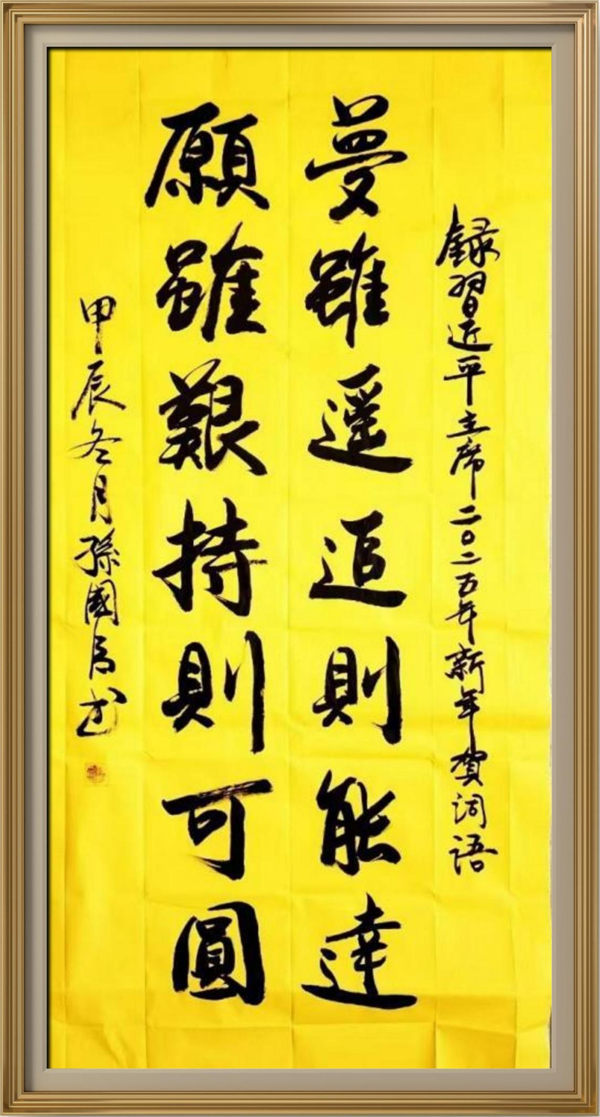 錄習近平主席二〇二五年新年賀詞語
夢雖遥追則能達
願雖艱持則可圓
甲辰冬月孫國书